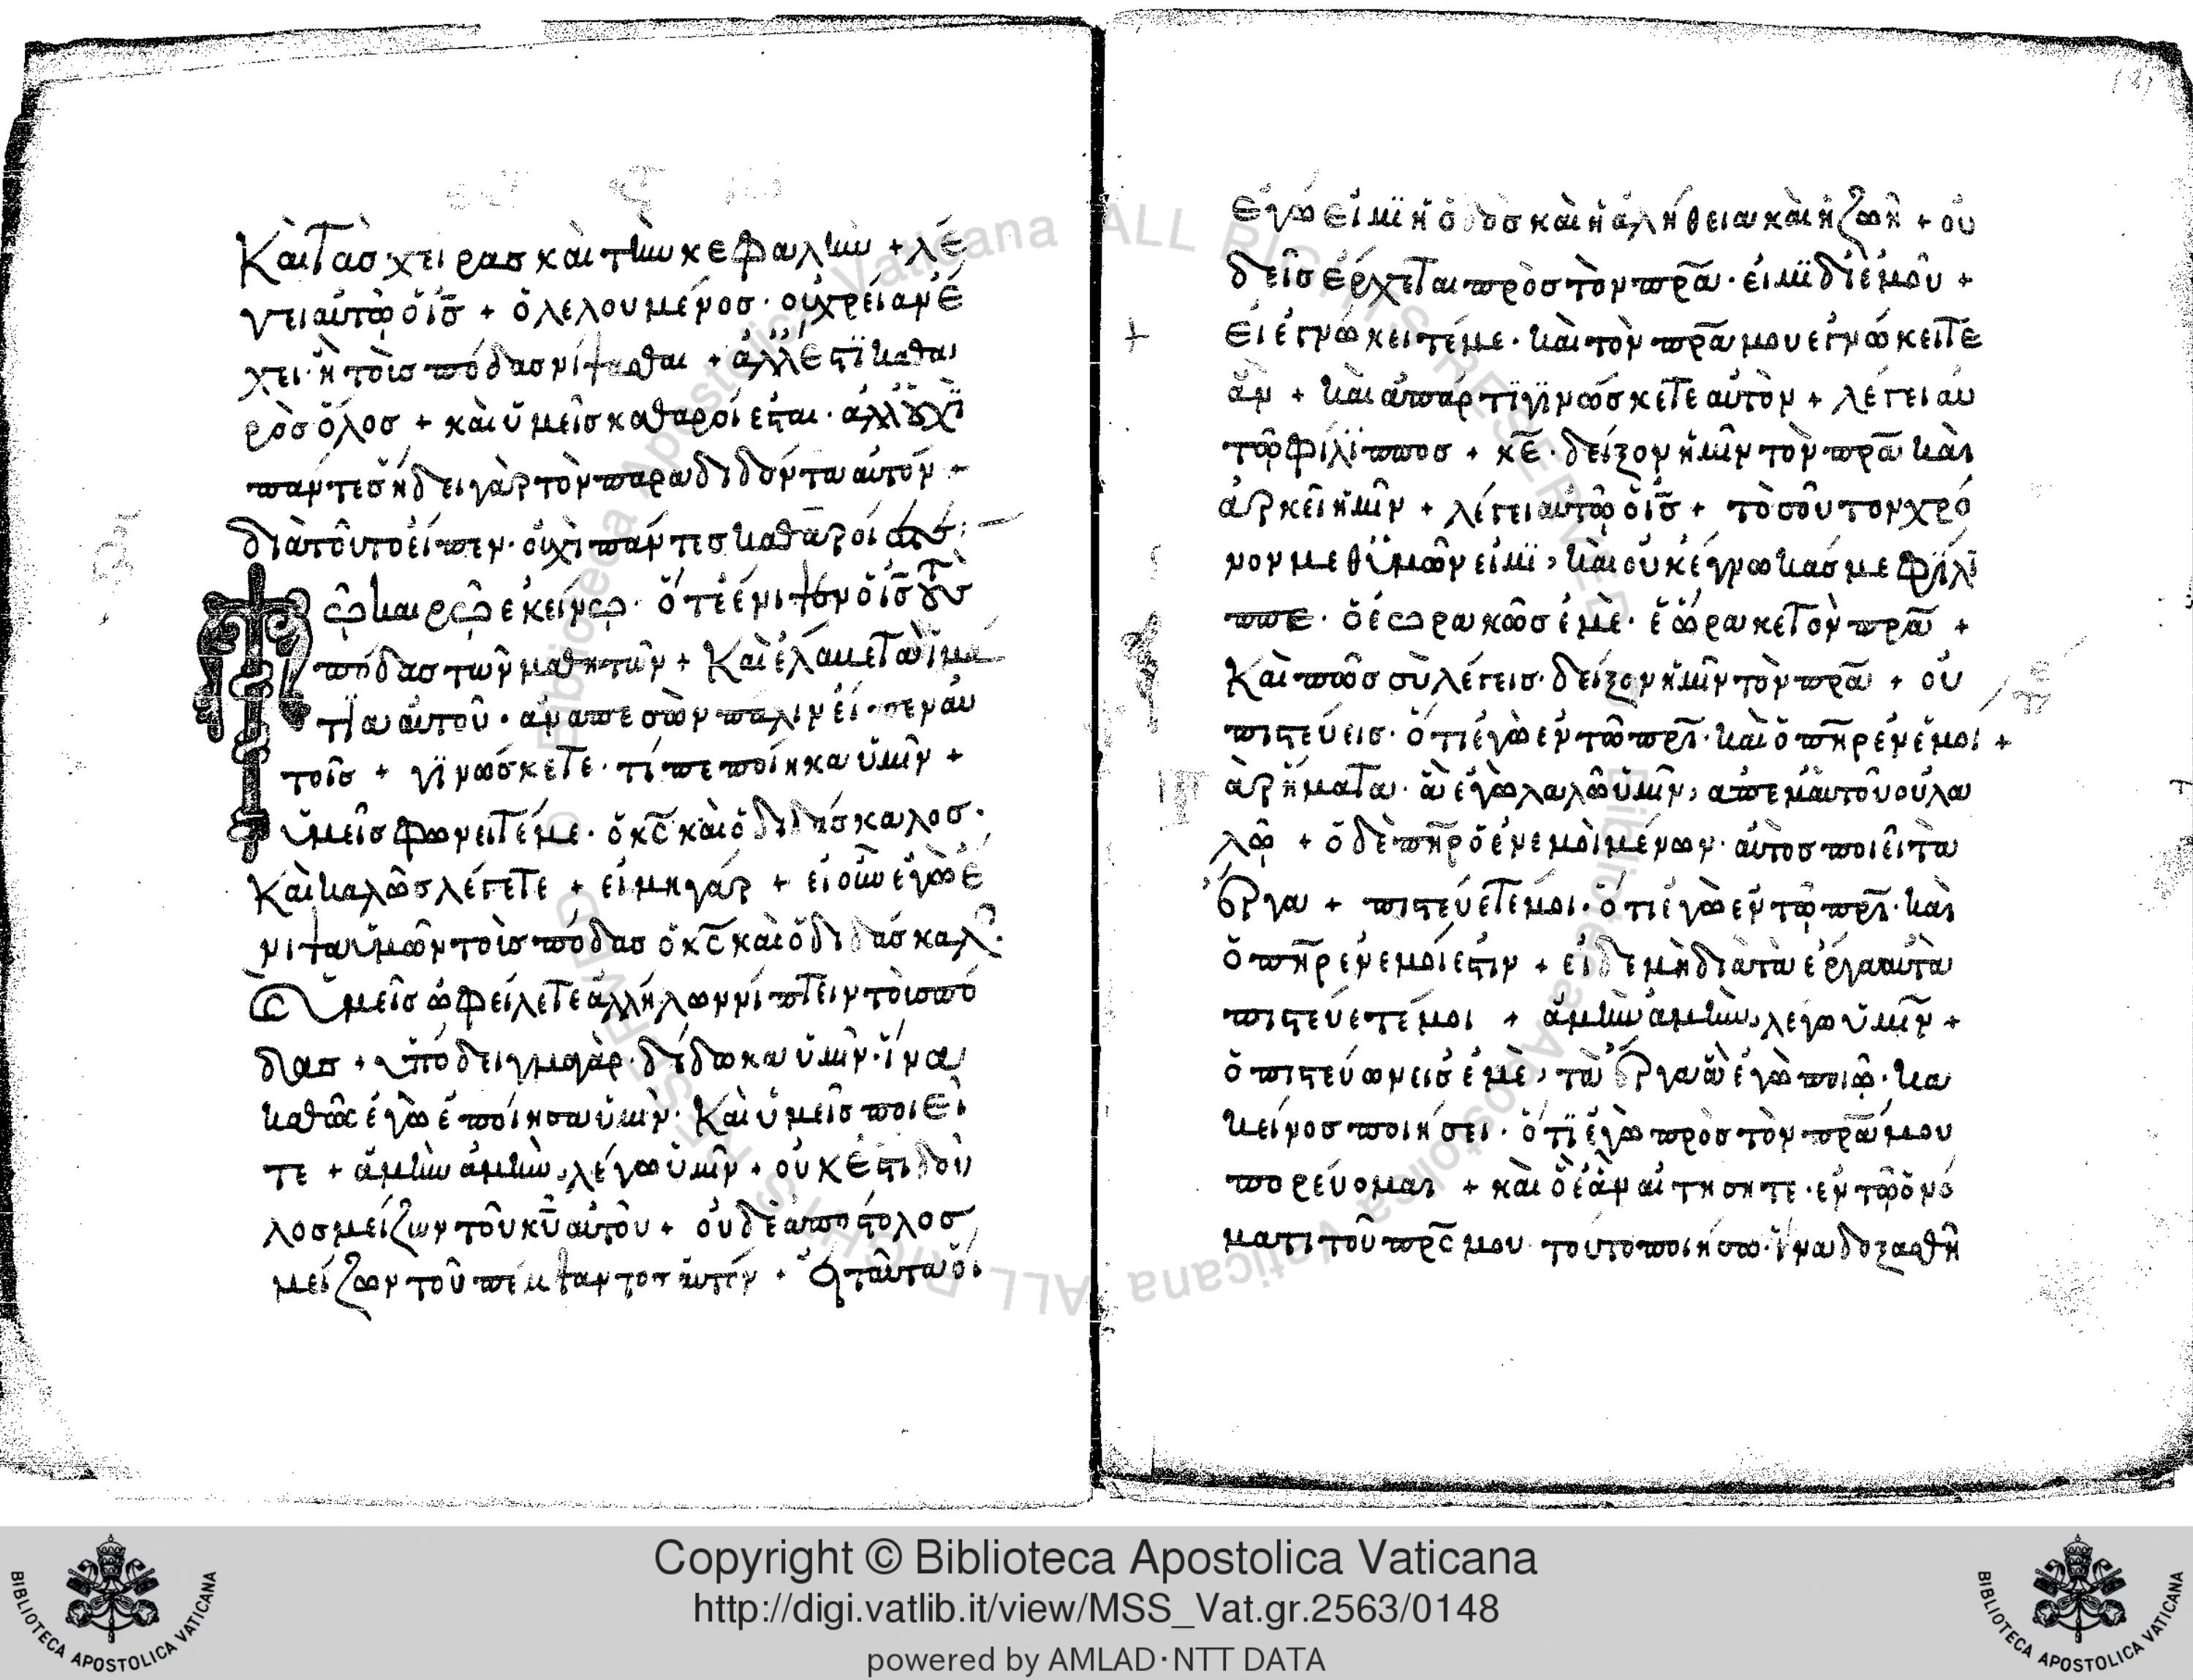 Καὶ τὰσ χεῖρασ καὶ τὴν κεφαλήν + λέ
γει αὐτῶ ὁ ἰ̅σ̅ + ὁ λελουμένοσ · οὐ χρείαν έ
χει · ἢ τοὺσ πόδασ νίψασθαι + ἀλλ ἐστὶ καθα
ρὸσ ὅλοσ + καὶ ὑμεῖσ καθαροί εσται · ἀλλ οὐχὶ
πάντεσ ἤδει γὰρ τὸν παραδιδόντα αὐτόν +
διὰ τοῦτο εἶπεν · οὐχὶ πάντεσ καθαροί
Τῶ καιρῶ ἐκείνω · ὅτε ἔνιψεν ὁ ἰ̅σ̅ τοὺσ
πόδασ τῶν μαθητῶν + Καὶ ἔλαμε τὰ ἱμά
τια αὐτοῦ · ἀναπεσὼν πάλιν εἶπεν αὐ
τοῖσ + γϊνώσκετε · τί πεποίηκα ὑμῖν +
ὑμεῖσ φωνεῖτέ με · ὁ κ̅σ̅ καὶ ὁ διδάσκαλοσ ·
Καὶ καλῶσ λέγετε + εἰμὴ γάρ + εἰ οὖν ἐγὼ ἔ
νιψα ὑμῶν τοὺσ πόδασ ὁ κ̅σ̅ καὶ ὁ διδάσκαλ
ὑμεῖσ ὠφείλετε ἀλλήλων νίπτειν τοὺσ πό
δασ + ὑπόδειγμα γὰρ · δέδωκα ὑμῖν · ἵνα
καθὼσ ἐγὼ ἐποίησα ὑμῖν · Καὶ ὑμεῖσ ποιεῖ
τε + ἀμὴν ἀμὴν, λέγω ὑμῖν + οὐκ ἔστι δοῦ
λοσ μείζων τοῦ κ̅υ̅ αὐτοῦ + οὐδὲ ἀπόστολοσ
μείζων τοῦ πέμψαντοσ αὐτόν + εἰ ταῦτα οἴ
Ἐγώ εἰμϊ ἡ ὁδὸσ καὶ ἡ ἀλήθεια καὶ ἡ ζωή + οὐ
δεὶσ ἔρχεται πρὸσ τὸν π̅ρ̅α̅ · εἰ μὶ δι ἐμοῦ +
Εἰ ἐγνώκειτέ με · καὶ τὸν π̅ρ̅α̅ μου ἐγνώκειτε
ἄν + καὶ ἀπάρτι γϊνώσκετε αὐτόν + λέγει αὐ
τῶ φίλϊπποσ + κ̅ε̅ · δεῖξον ἡμῖν τὸν π̅ρ̅α̅ καὶ
ἀρκεῖ ἡμῖν + λέγει αὐτῶ ὁ ἰ̅σ̅ + τὸσοῦτον χρό
νον μεθ ὑμῶν εἰμϊ, καὶ οὐκ ἔγνωκάσ με φίλϊ
ππε · ὁ ἑωρακὼσ ἐμὲ · ἑώρακε τὸν π̅ρ̅α̅ +
Καὶ πῶσ σὺ λέγεισ · δεῖξον ἡμῖν τὸν π̅ρ̅α̅ + οὐ
πιστεύεισ · ὅτι ἐγὼ ἐν τῶ π̅ρ̅ι̅ · καὶ ὁ π̅η̅ρ̅ ἐν ἐμοί +
ὰ ρήματα · ἃ ἐγὼ λαλῶ ὑμῖν, απ ἐμαυτοῦ οὐ λα
λῶ + ὁ δὲ π̅η̅ρ̅ ὁ ἐν ἐμοὶ μένων · αὐτὸσ ποιεῖ τὰ
ἔργα + πιστεύετέ μοι · ὅτι ἐγὼ ἐν τῶ π̅ρ̅ι̅ · καὶ
ὁ π̅η̅ρ̅ ἐν ἐμοί ἐστιν + εἰ δὲ μὴ διὰ τὰ ἔργα αυτὰ
πιστεύετέ μοι + ἀμὴν ἀμὴν, λέγω ὑμῖν +
ὁ πιστεύων εἰσ ἐμὲ, τὰ ἔργα ἃ ἐγὼ ποιῶ · κα
κεῖνοσ ποιήσει · ὅτι ἐγὼ πρὸσ τὸν π̅ρ̅α̅ μου
πορεύομαι + καὶ ὃ ἐὰν αἰτήσητε · ἐν τῶ ὀνό
ματι τοῦ π̅ρ̅σ̅ μου τουτο ποιήσω · ἵνα δοξασθῆ
Copyright © Biblioteca Apostolica Vaticana
http://digi.vatlib.it/view/MSS_Vat.gr.2563/0148
powered by AMLAD·NTT DATA
BIBLIOTECA APOSTOLICA VATICANA
BIBLIOTECA APOSTOLICA VATICANA